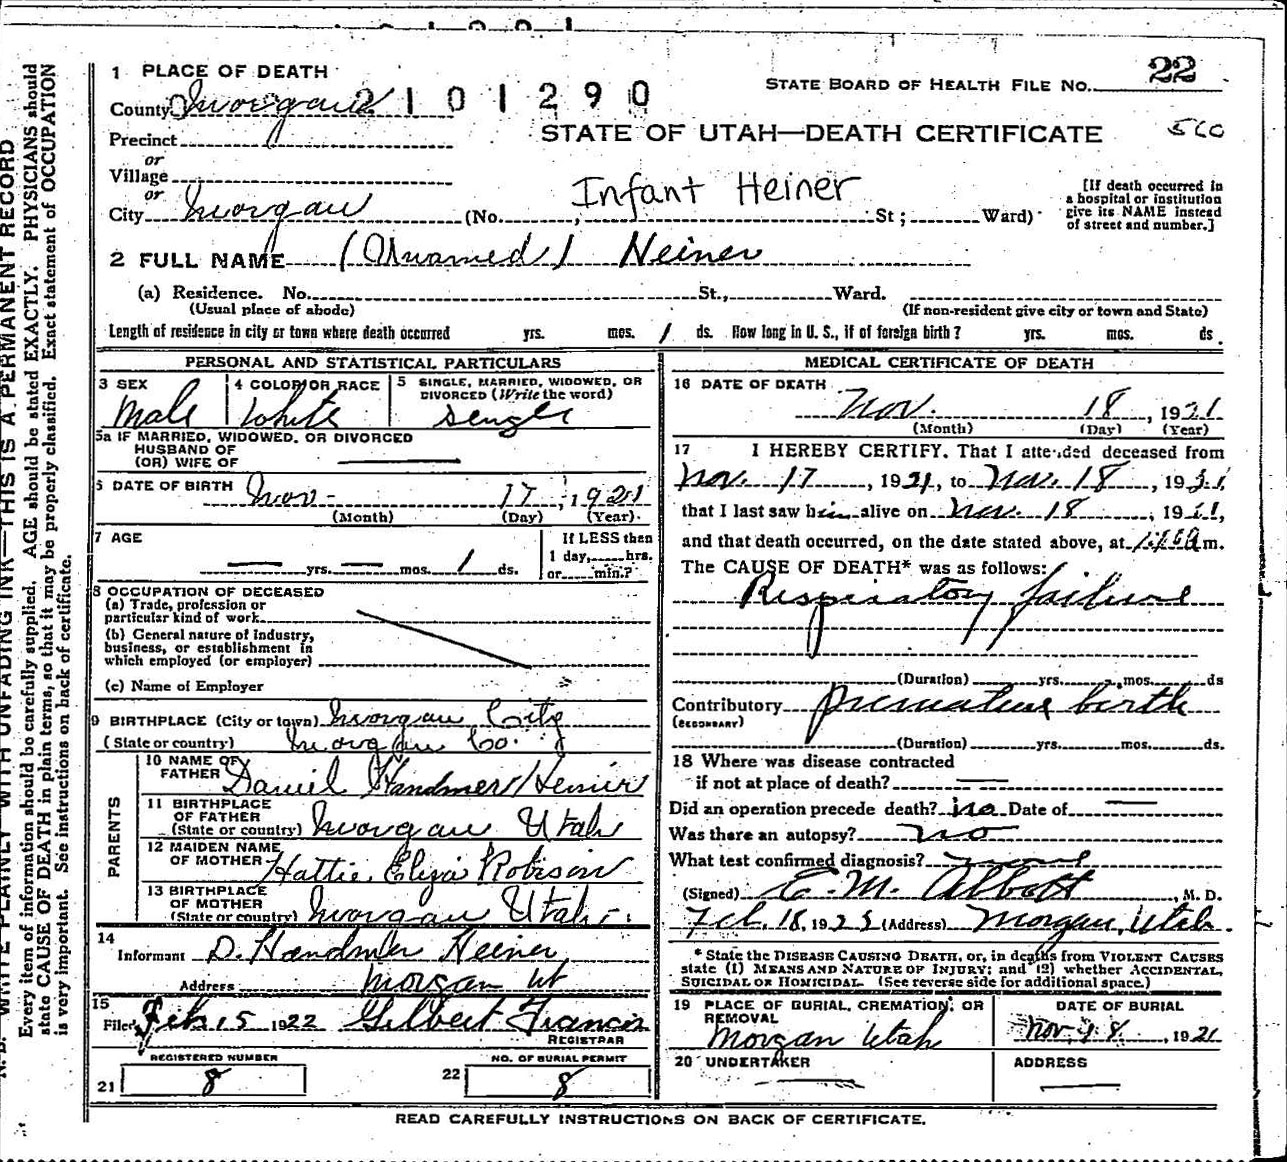 1 PLACE OF DEATH
STATE BOARD OF HEALTH FILE NO. 22
County Morgan 2101290
STATE OF UTAH—DEATH CERTIFICATE 560
Precinct
or
Village
or
City Morgan (No. , Infant Heiner St; Ward)
[If death occurred in
a hospital or institution
give its NAME instead
of street and number.]
2 FULL NAME (Unamed) Heiner
(a) Residence. No. St., Ward.
(Usual place of abode) (If non-resident give city or town and State)
Length of residence in city or town where death occurred yrs. mos. 1 ds. How long in U. S., if of foreign birth? yrs. mos. ds.
PERSONAL AND STATISTICAL PARTICULARS
3 SEX 4 COLOR OR RACE 5 SINGLE, MARRIED, WIDOWED, OR
DIVORCED (Write the word)
Male White
5a IF MARRIED, WIDOWED, OR DIVORCED
HUSBAND OF
(OR) WIFE OF —
6 DATE OF BIRTH Nov- 17, 1921
(Month) (Day) (Year).
7 AGE If LESS then
1 day, hrs.
or min.?
— yrs. — mos. 1 ds.
8 OCCUPATION OF DECEASED
(a) Trade, profession or
particular kind of work
(b) General nature of industry,
business, or establishment in
which employed (or employer)
(c) Name of Employer
9 BIRTHPLACE (City or town) Morgan City
(State or country) Morgan Co.
PARENTS
10 NAME OF
FATHER Daniel Handmer Heiner
11 BIRTHPLACE
OF FATHER
(State or country) Morgan Utah
12 MAIDEN NAME
OF MOTHER Hattie Eliza Robison
13 BIRTHPLACE
OF MOTHER
(State or country) Morgan Utah
14
Informant D. Handmer Heiner
Address Morgan Ut
15
Filed Feb 15 1922 Gilbert Francis
REGISTRAR
REGISTERED NUMBER NO. OF BURIAL PERMIT
21 8 22 8
MEDICAL CERTIFICATE OF DEATH
16 DATE OF DEATH
Nov. 18, 1921
(Month) (Day) (Year)
17 I HEREBY CERTIFY. That I attended deceased from
Nov. 17, 1921, to Nov. 18, 1921
that I last saw him alive on Nov. 18, 1921,
and that death occurred, on the date stated above, at m.
The CAUSE OF DEATH* was as follows:
Respiratory failure
(Duration) yrs. mos. ds
Contributory premature birth
(SECONDARY)
(Duration) yrs. mos. ds.
18 Where was disease contracted
if not at place of death? —
Did an operation precede death? no Date of —
Was there an autopsy? no
What test confirmed diagnosis?
(Signed) E. M. Abbott, M. D.
Feb. 18, 1923 (Address) Morgan, Utah.
* State the DISEASE CAUSING DEATH, or, in deaths from VIOLENT CAUSES
state (1) MEANS AND NATURE OF INJURY; and (2) whether ACCIDENTAL,
SUICIDAL OR HOMICIDAL. (See reverse side for additional space.)
19 PLACE OF BURIAL, CREMATION, OR
REMOVAL DATE OF BURIAL
Morgan Utah Nov. 18, 1921
20 UNDERTAKER ADDRESS
— —
READ CAREFULLY INSTRUCTIONS ON BACK OF CERTIFICATE.
WRITE PLAINLY WITH UNFADING INK—THIS IS A PERMANENT RECORD
Every item of information should be carefully supplied. AGE should be stated EXACTLY. PHYSICIANS should
state CAUSE OF DEATH in plain terms, so that it may be properly classified. Exact statement of OCCUPATION
is very important. See instructions on back of certificate.